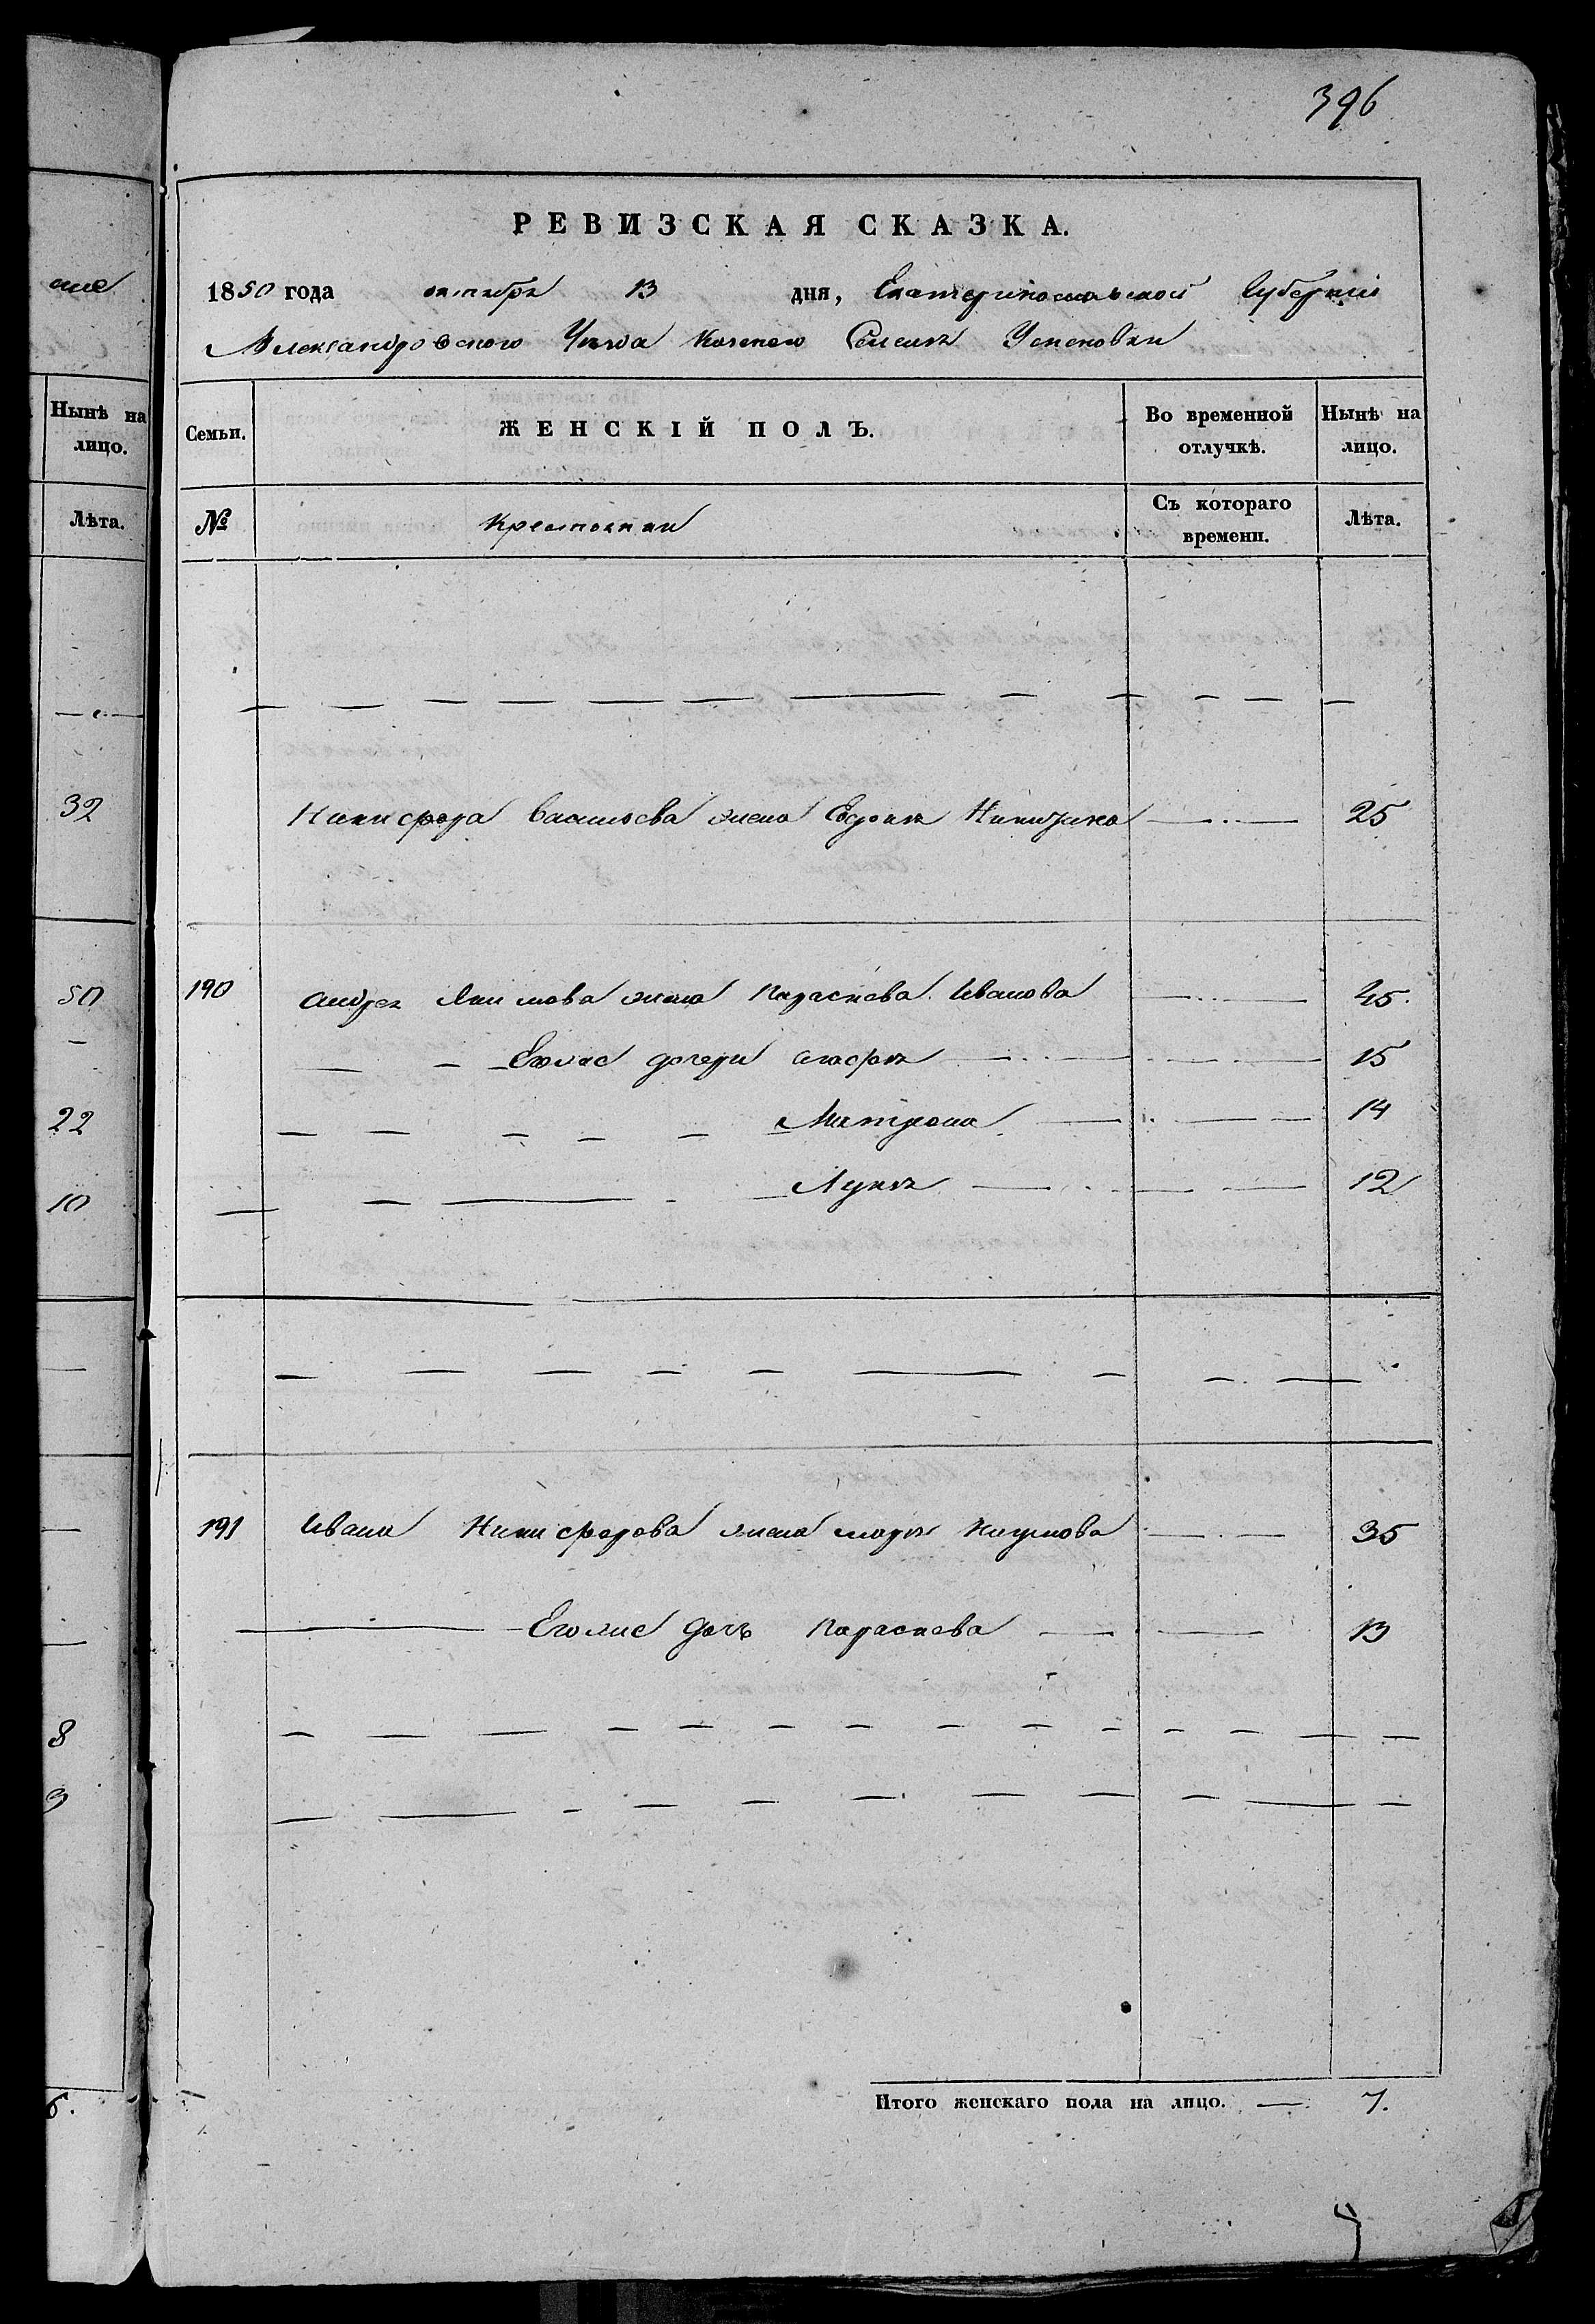 396
РЕВИЗСКАЯ СКАЗКА.
1850 года октября 13 дня, Екатеринославской Губернии
Александровского Уезда Казенного Селения Успеновки
Семьи. ЖЕНСКІЙ ПОЛЪ. Во временной отлучкѣ. Нынѣ на лицо.
№ Крестьянки Съ котораго времени. Лѣта.
Никифора жена 25
190 Андрея Акимова жена Параскева Иванова 45.
Его же дочери Агафья 15
Матрона 14
12
191 Ивана Никифорова жена Марья Наумова 35
Его же дочь Параскева 13
Итого женскаго пола на лицо. 7.
Нынѣ на лицо.
Лѣта.
32
50
22
10
8
3